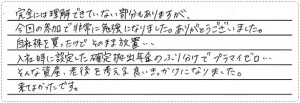 完全には理解できていない部分もありますが、
今回の参加で非常に勉強になりました。ありがとうございました。
自社株を買ったけど そのまま放置…
入社時に設定した確定拠出年金のふり分けでプラマイゼロ…
そんな資産、老後を考える良いきっかけになりました。
来てよかったです。